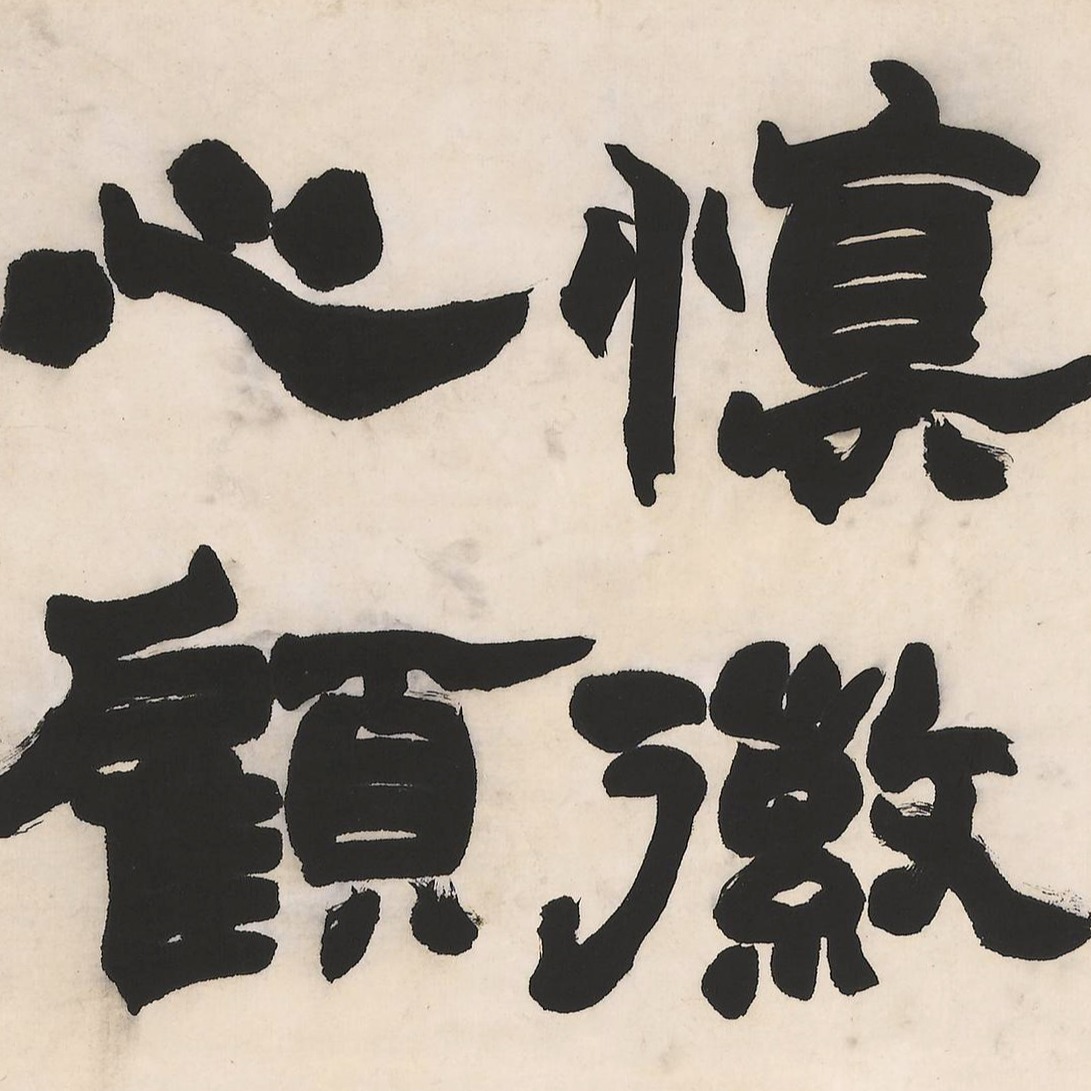 慎徽
心顧